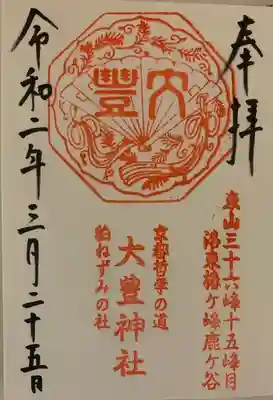 奉拝
大豊
東山三十六峰十五峰目
洛東椿ヶ峰鹿ヶ谷
京都哲学の道
大豊神社
狛ねずみの社
令和二年三月二十五日